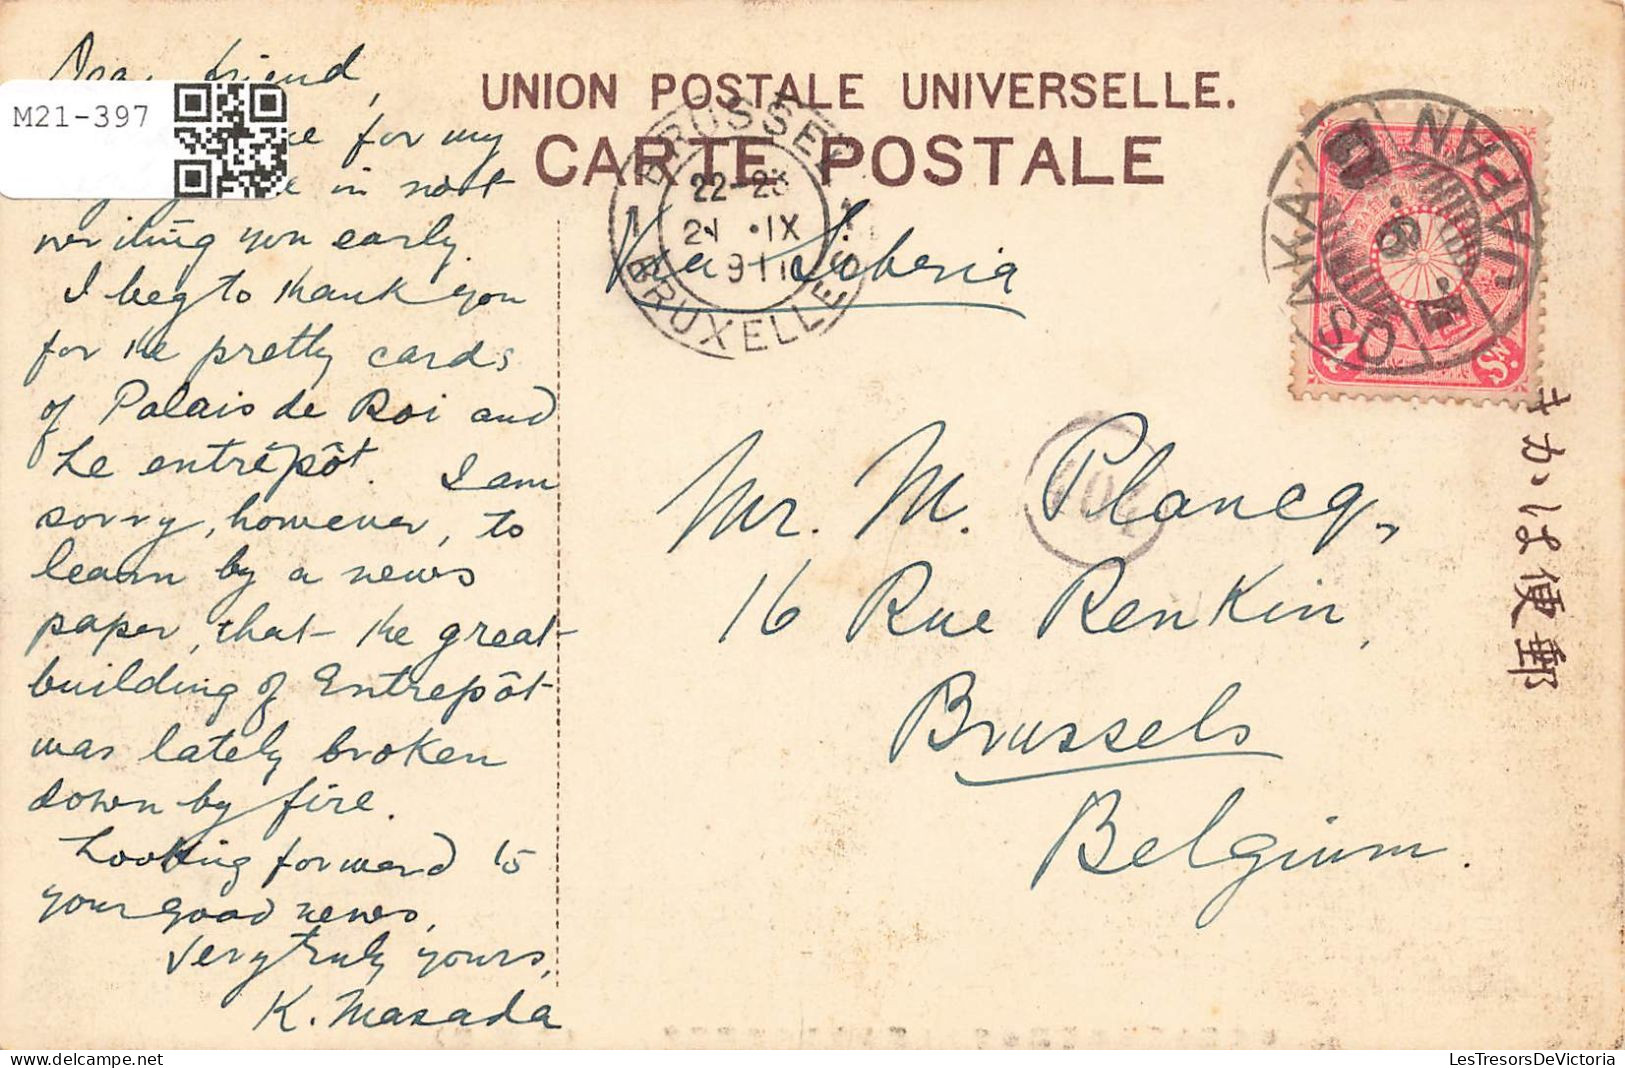 M21-397
Dear friend,
for my
in not
writing you early.
I beg to thank you
for the pretty cards
of Palais de Roi and
Le entrêpôt. I am
sorry, however, to
learn by a news
paper, that the great
building of Entrepôt
was lately broken
down by fire.
Looking forward to
your good news,
Very truly yours,
K. Masada
UNION POSTALE UNIVERSELLE.
CARTE POSTALE
BRUSSEL
22-23
21 · IX
1
BRUXELLES
Via Siberia
OSAKA
JAPAN
4
Sn.
Mr. M. Plancq,
16 Rue Renkin,
Brussels
Belgium.
郵便はかき
LesTresorsDeVictoria